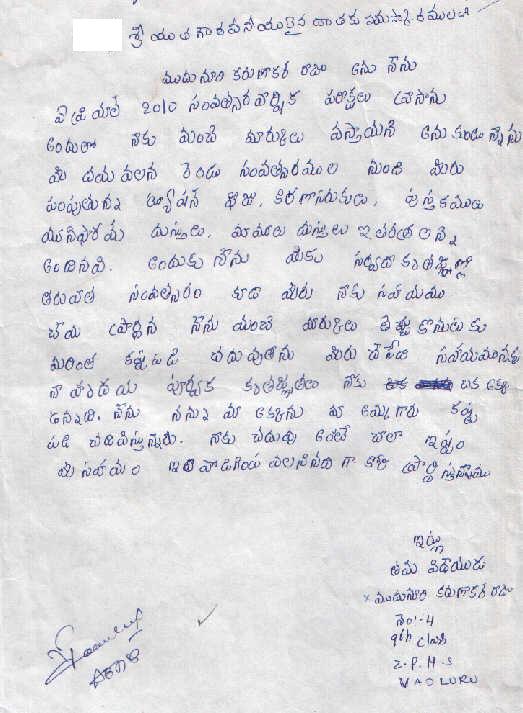 శ్రీ యుత గౌరవనీయులైన దాతకు నమస్కారములు
ముదునూరి కరుణాకర్ రాజు అను నేను
ఏప్రియల్ 2010 సంవత్సర వార్షిక పరీక్షలు వ్రాసాను
అందులో నాకు మంచి మార్కులు వస్తాయని అనుకుంటున్నాను
మీ దయ వలన రెండు సంవత్సరముల నుండి మీరు
పంపుతున్న ట్యూషన్ ఫీజు, కిరాణాసరుకులు, పుస్తకములు
యూనిఫారమ్ దుస్తులు, మామూలు దుస్తులు ఇతరత్రా అన్ని
అందినవి. అందుకు నేను మీకు సర్వదా కృతజ్ఞుణ్ణి
తరువాత సంవత్సరం కూడా మీరు నాకు సహాయము
చేయ ప్రార్ధన నేను మంచి మార్కులు తెచ్చుకొనుటకు
మరింత కష్టపడి చదువుతాను మీరు చేసేది సహాయమునకు
నా హృదయ పూర్వక కృతజ్ఞతలు నాకు ఒక అక్క
ఉన్నది. నేను నన్ను మా అక్కను మా అమ్మగారు కష్ట
పడి చదివిస్తున్నారు. నాకు చదువు అంటే చాలా ఇష్టం
మీ సహాయం వలసినది గా కోరి ప్రార్థిస్తున్నాము
ఇట్లు
తమ విధేయుడు
x ముదునూరి కరుణాకర్ రాజు
No:-4
9th class
Z.P.H.S
VADLURU